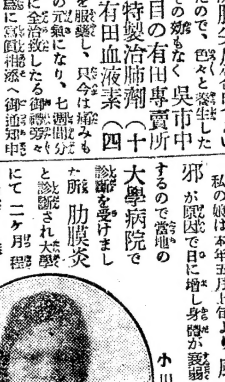 ので、色々と養生した
の効もなく 吳市中
目の有田專賣所
特製治肺劑(十
有田血液素(四
を服藥し、只今は痛みも
の元氣になり、七週間分
に全治致したる御禮旁々
爲に寫眞相添へ御通知申
私の娘は本年五月上旬より風
邪が原因で日に增し身體が衰弱
するので當地の
大學病院で
診斷を受けまし
た所 肋膜炎
と診斷され大學
にて二ケ月程
小川